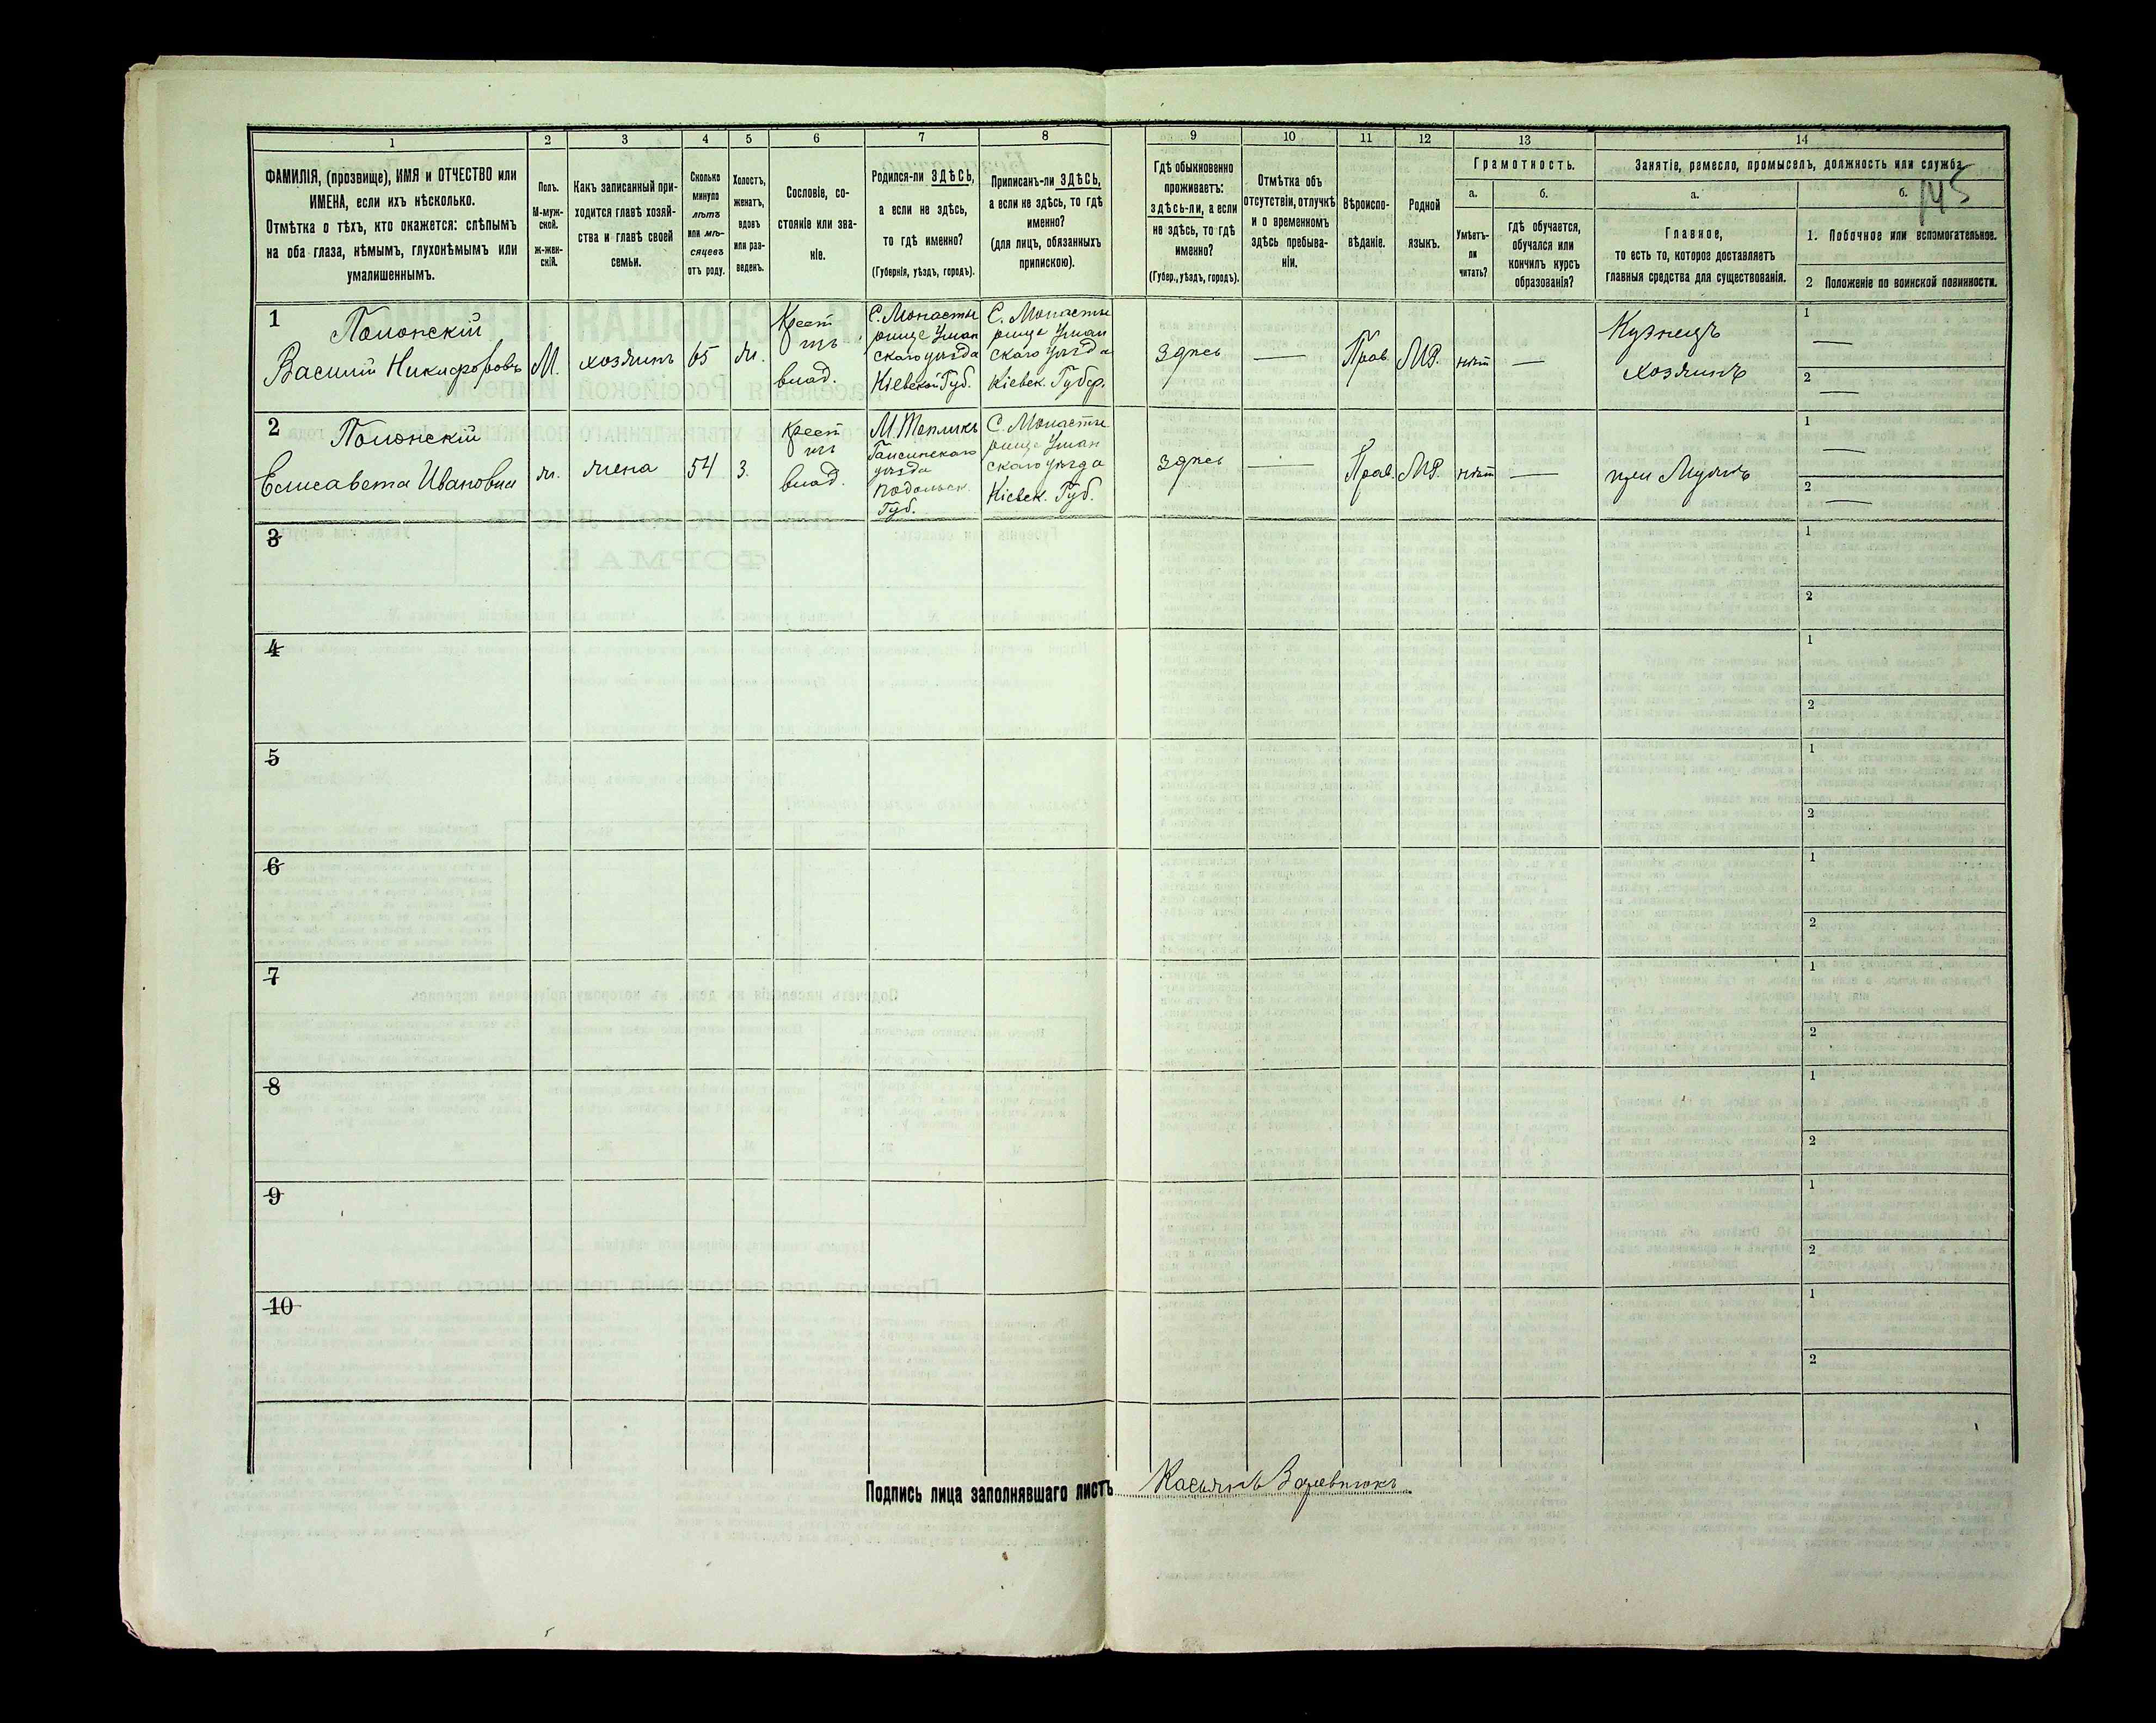 1
2
3
4
5
6
7
8
9
10
11
12
13
14
ФАМИЛІЯ, (прозвище), ИМЯ и ОТЧЕСТВО или
ИМЕНА, если ихъ нѣсколько.
Отмѣтка о тѣхъ, кто окажется: слѣпымъ
на оба глаза, нѣмымъ, глухонѣмымъ или
умалишеннымъ.
Полъ.
М-муж-
ской.
ж-жен-
скій.
Какъ записанный при-
ходится главѣ хозяй-
ства и главѣ своей
семьи.
Сколько
минуло
лѣтъ
или мѣ-
сяцевъ
отъ роду.
Холостъ,
женатъ,
вдовъ
или раз-
веденъ.
Сословіе, со-
стояніе или зва-
ніе.
Родился-ли ЗДѢСЬ,
а если не здѣсь,
то гдѣ именно?
(Губернія, уѣздъ, городъ).
Приписанъ-ли ЗДѢСЬ,
а если не здѣсь, то гдѣ
именно?
(для лицъ, обязанныхъ
припискою).
Гдѣ обыкновенно
проживаетъ:
здѣсь-ли, а если
не здѣсь, то гдѣ
именно?
(Губер., уѣздъ, городъ).
Отмѣтка объ
отсутствіи, отлучкѣ
и о временномъ
здѣсь пребыва-
ніи.
Вѣроиспо-
вѣданіе.
Родной
языкъ.
Грамотность.
а.
Умѣетъ-
ли
читать?
б.
гдѣ обучается,
обучался или
кончилъ курсъ
образованія?
Занятіе, ремесло, промыселъ, должность или служба.
145
а.
Главное,
то есть то, которое доставляетъ
главныя средства для существованія.
б.
1. Побочное или вспомогательное.
2 Положеніе по воинской повинности.
1
Полонскій
Василій Никифоровъ
М.
хозяинъ
65
ж.
Крест
изъ
влад.
С. Монасты
рище Уман
скаго уѣзда
Кіевской Губ.
С. Монасты
рище Уман
скаго уѣзда
Кіевск. Губер.
здѣсь
—
Прав.
МР.
нѣт
—
Кузнецъ
хозяинъ
1
—
2
—
2
Полонскій
Елисавета Ивановна
ж.
жена
54
З.
Крест
изъ
влад.
М. Тепликъ
Гайсинскаго
уѣзда
Подольск.
Губ.
С. Монасты
рище Уман
скаго уѣзда
Кіевск. Губ.
здѣсь
—
Прав.
МР.
нѣт
—
при Мужѣ
1
—
2
—
3
1
2
4
1
2
5
1
2
6
1
2
7
1
2
8
1
2
9
1
2
10
1
2
Подпись лица заполнявшаго листъ